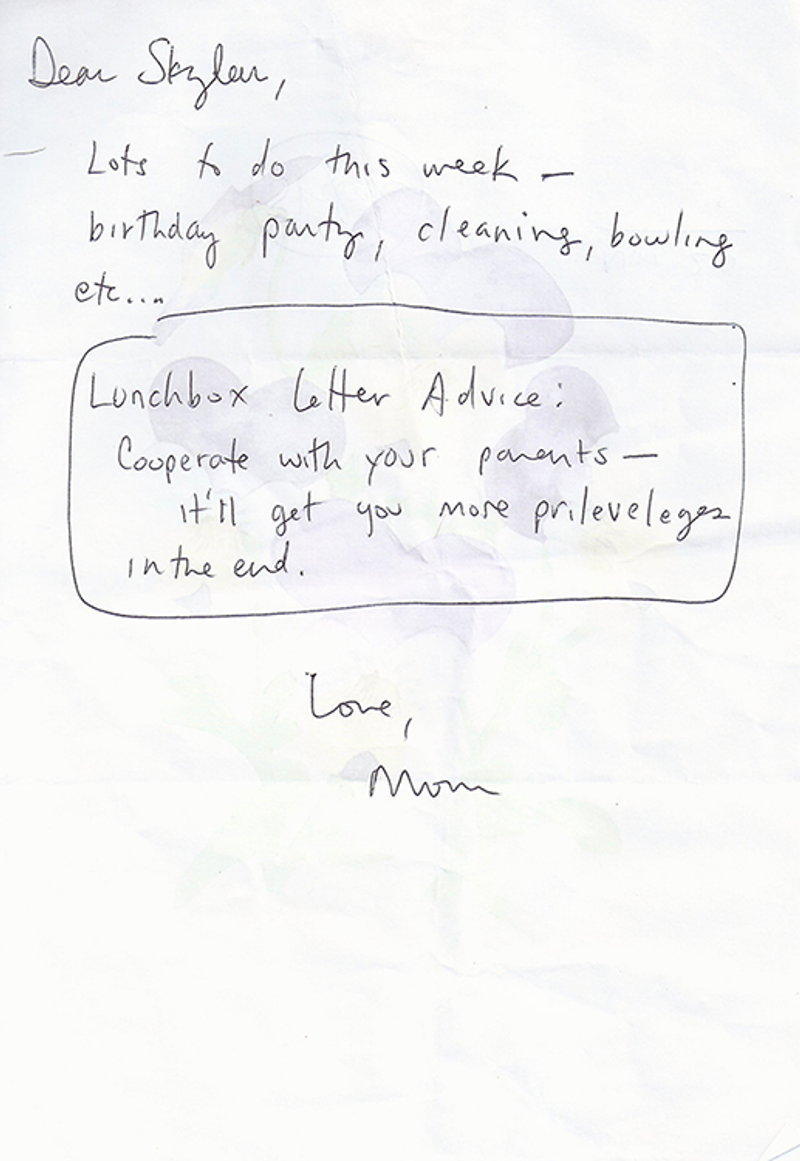 Dear Skyler,
Lots to do this week —
birthday party, cleaning, bowling
etc....
Lunchbox Letter Advice:
Cooperate with your parents —
it'll get you more prileveleges
in the end.
Love,
Mom